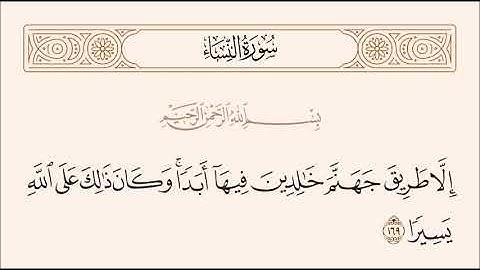 سُورَةُ النِّسَاءِ
بِسْمِ ٱللَّهِ ٱلرَّحْمَٰنِ ٱلرَّحِيمِ
إِلَّا طَرِيقَ جَهَنَّمَ خَٰلِدِينَ فِيهَآ أَبَدًا ۚ وَكَانَ ذَٰلِكَ عَلَى ٱللَّهِ
يَسِيرًا ١٦٩